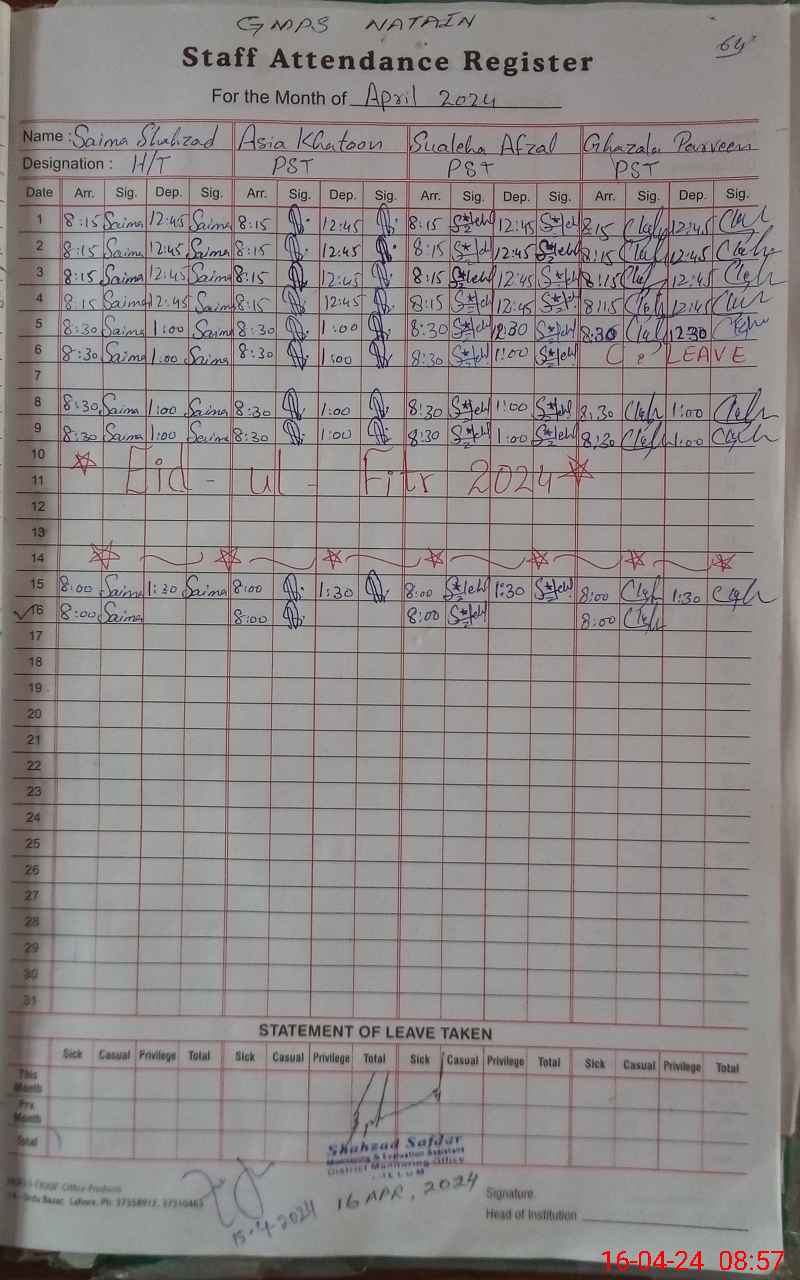 GMPS NATAIN
64
Staff Attendance Register
For the Month of April 2024
Name : Saima Shahzad Asia Khatoon Sualeha Afzal Ghazala Parveen
Designation : H/T PST PST PST
Date Arr. Sig. Dep. Sig. Arr. Sig. Dep. Sig. Arr. Sig. Dep. Sig. Arr. Sig. Dep. Sig.
1 8:15 Saima 12:45 Saima 8:15 12:45 8:15 12:45 8:15 12:45
2 8:15 Saima 12:45 Saima 8:15 12:45 8:15 12:45 8:15 12:45
3 8:15 Saima 12:45 Saima 8:15 12:45 8:15 12:45 8:15 12:45
4 8:15 Saima 12:45 Saima 8:15 12:45 8:15 12:45 8:15 12:45
5 8:30 Saima 1:00 Saima 8:30 1:00 8:30 12:30 8:30 12:30
6 8:30 Saima 1:00 Saima 8:30 1:00 8:30 1:00 C. LEAVE
7
8 8:30 Saima 1:00 Saima 8:30 1:00 8:30 1:00 8:30 1:00
9 8:30 Saima 1:00 Saima 8:30 1:00 8:30 1:00 8:30 1:00
10
11 Eid - ul - Fitr 2024
12
13
14
15 8:00 Saima 1:30 Saima 8:00 1:30 8:00 1:30 8:00 1:30
16 8:00 Saima 8:00 8:00 8:00
17
18
19
20
21
22
23
24
25
26
27
28
29
30
31
STATEMENT OF LEAVE TAKEN
Sick Casual Privilege Total Sick Casual Privilege Total Sick Casual Privilege Total Sick Casual Privilege Total
This Month
Prv. Month
Total
Shahzad Safdar
Monitoring & Evaluation Assistant
District Monitoring Office
16 APR, 2024
15-4-2024
Office Products
Urdu Bazar, Lahore. Ph: 37358912, 37310465
Signature
Head of Institution
16-04-24 08:57